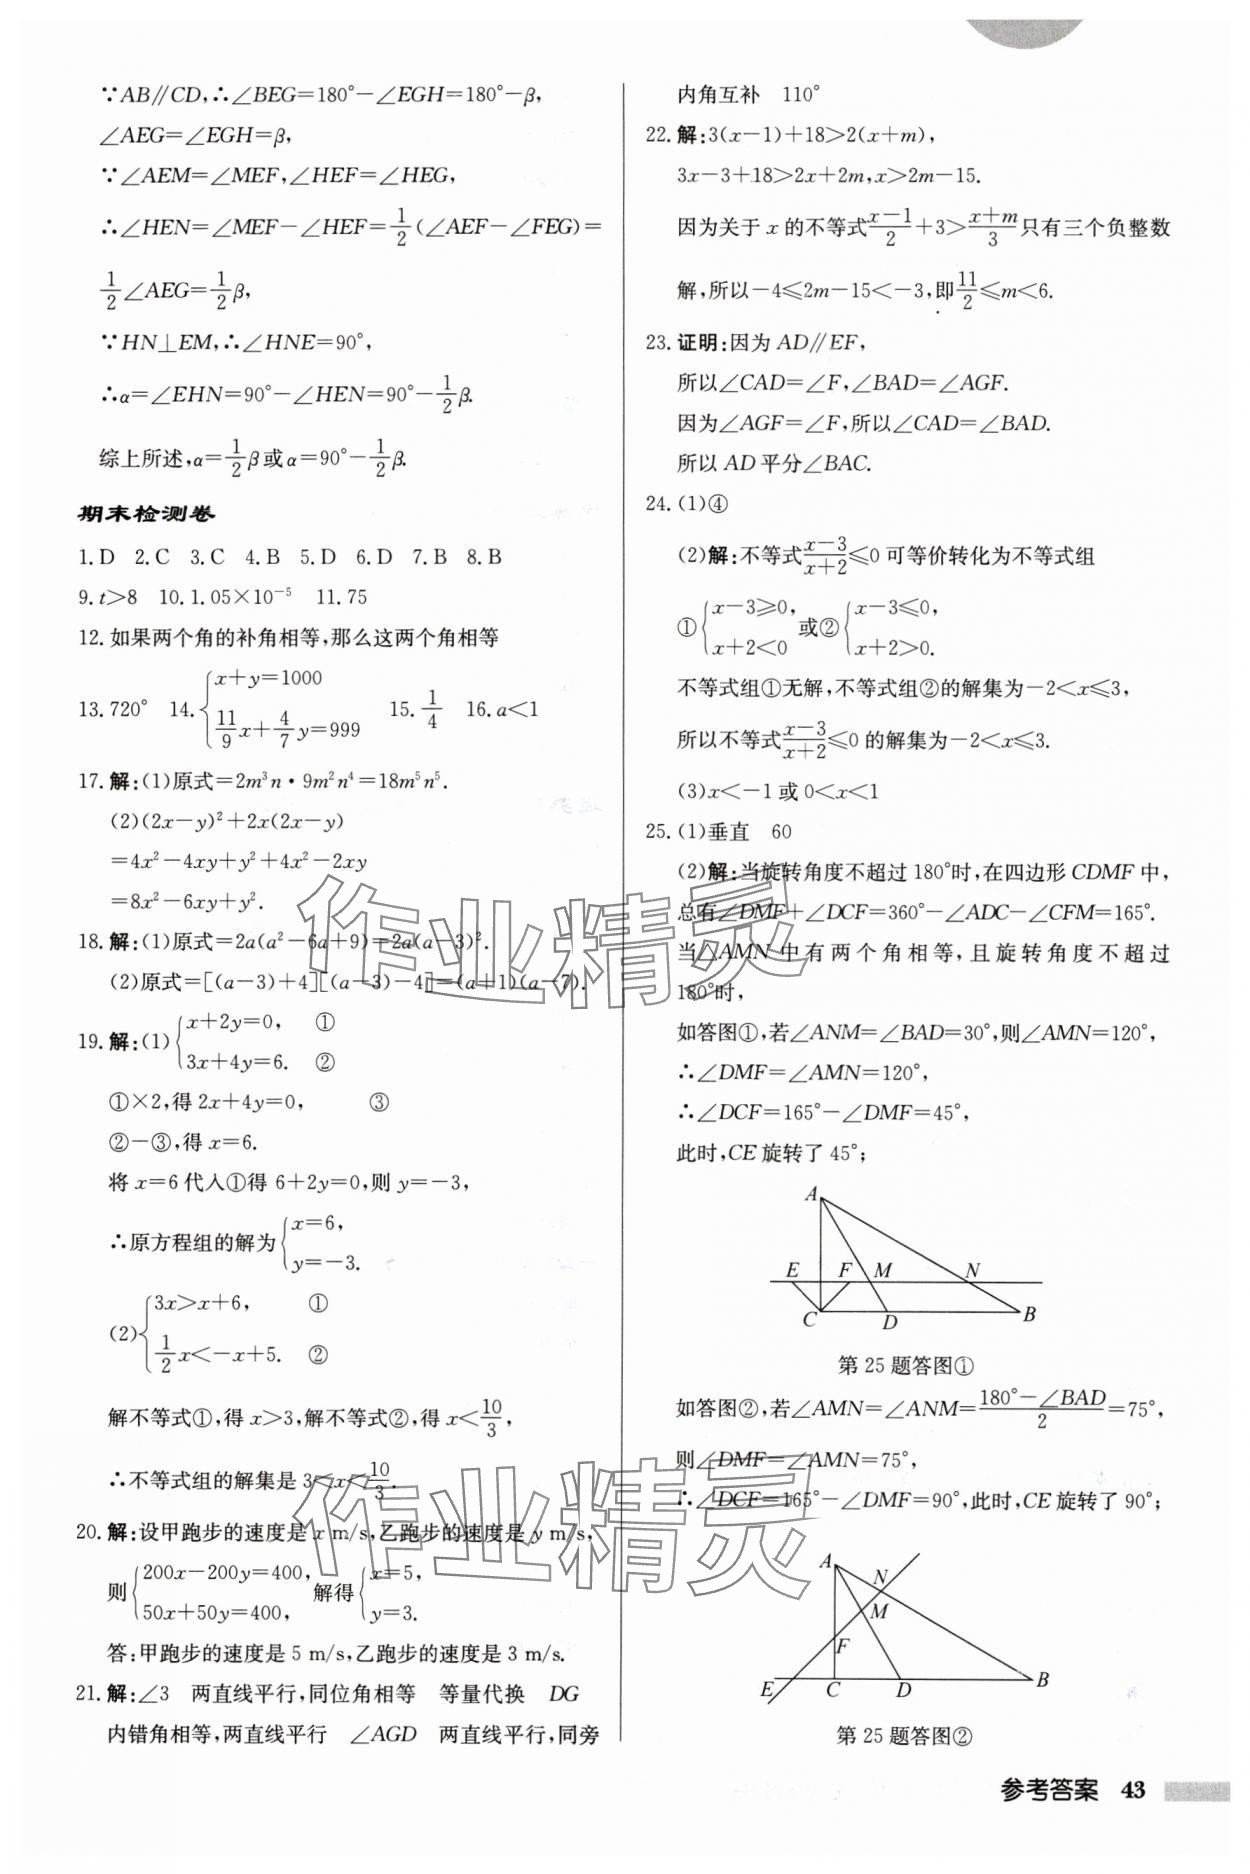 ∵AB∥CD,∴∠BEG=180°-∠EGH=180°-β,
∠AEG=∠EGH=β,
∵∠AEM=∠MEF,∠HEF=∠HEG,
∴∠HEN=∠MEF-∠HEF=1/2(∠AEF-∠FEG)=
1/2∠AEG=1/2β,
∵HN⊥EM,∴∠HNE=90°,
∴α=∠EHN=90°-∠HEN=90°-1/2β.
综上所述,α=1/2β或α=90°-1/2β.
期末检测卷
1.D 2.C 3.C 4.B 5.D 6.D 7.B 8.B
9.t>8 10.1.05×10⁻⁵ 11.75
12.如果两个角的补角相等,那么这两个角相等
13.720° 14.{x+y=1000 11/9x+4/7y=999 15.1/4 16.a<1
17.解:(1)原式=2m³n·9m²n⁴=18m⁵n⁵.
(2)(2x-y)²+2x(2x-y)
=4x²-4xy+y²+4x²-2xy
=8x²-6xy+y².
18.解:(1)原式=2a(a²-6a+9)=2a(a-3)².
(2)原式=[(a-3)+4][(a-3)-4]=(a+1)(a-7).
19.解:(1){x+2y=0, ①
3x+4y=6. ②
①×2,得2x+4y=0, ③
②-③,得x=6.
将x=6代入①得6+2y=0,则y=-3,
∴原方程组的解为{x=6,
y=-3.
(2){3x>x+6, ①
1/2x<-x+5. ②
解不等式①,得x>3,解不等式②,得x<10/3,
∴不等式组的解集是3<x<10/3.
20.解:设甲跑步的速度是x m/s,乙跑步的速度是y m/s,
则{200x-200y=400, 50x+50y=400, 解得{x=5, y=3.
答:甲跑步的速度是5 m/s,乙跑步的速度是3 m/s.
21.解:∠3 两直线平行,同位角相等 等量代换 DG
内错角相等,两直线平行 ∠AGD 两直线平行,同旁
内角互补 110°
22.解:3(x-1)+18>2(x+m),
3x-3+18>2x+2m,x>2m-15.
因为关于x的不等式(x-1)/2+3>(x+m)/3只有三个负整数
解,所以-4≤2m-15<-3,即11/2≤m<6.
23.证明:因为AD∥EF,
所以∠CAD=∠F,∠BAD=∠AGF.
因为∠AGF=∠F,所以∠CAD=∠BAD.
所以AD平分∠BAC.
24.(1)④
(2)解:不等式(x-3)/(x+2)≤0可等价转化为不等式组
①{x-3≥0, x+2<0 或②{x-3≤0, x+2>0.
不等式组①无解,不等式组②的解集为-2<x≤3,
所以不等式(x-3)/(x+2)≤0的解集为-2<x≤3.
(3)x<-1或0<x<1
25.(1)垂直 60
(2)解:当旋转角度不超过180°时,在四边形CDMF中,
总有∠DMF+∠DCF=360°-∠ADC-∠CFM=165°.
当△AMN中有两个角相等,且旋转角度不超过
180°时,
如答图①,若∠ANM=∠BAD=30°,则∠AMN=120°,
∴∠DMF=∠AMN=120°,
∴∠DCF=165°-∠DMF=45°,
此时,CE旋转了45°;
A
E F M N
C D B
第25题答图①
如答图②,若∠AMN=∠ANM=(180°-∠BAD)/2=75°,
则∠DMF=∠AMN=75°,
∴∠DCF=165°-∠DMF=90°,此时,CE旋转了90°;
A
N
M
F
E C D B
第25题答图②
参考答案 43
作业精灵
作业精灵